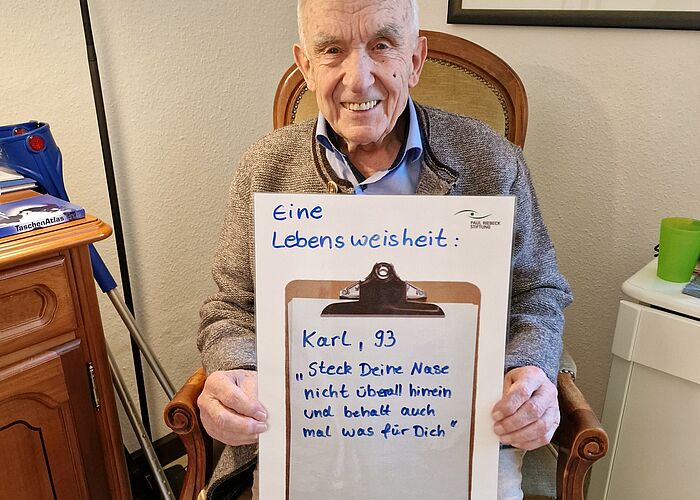 Eine
Lebensweisheit:
PAUL RIEBECK
STIFTUNG
Karl, 93
„Steck Deine Nase
nicht überall hinein
und behalt auch
mal was für Dich"
TaschenAtlas